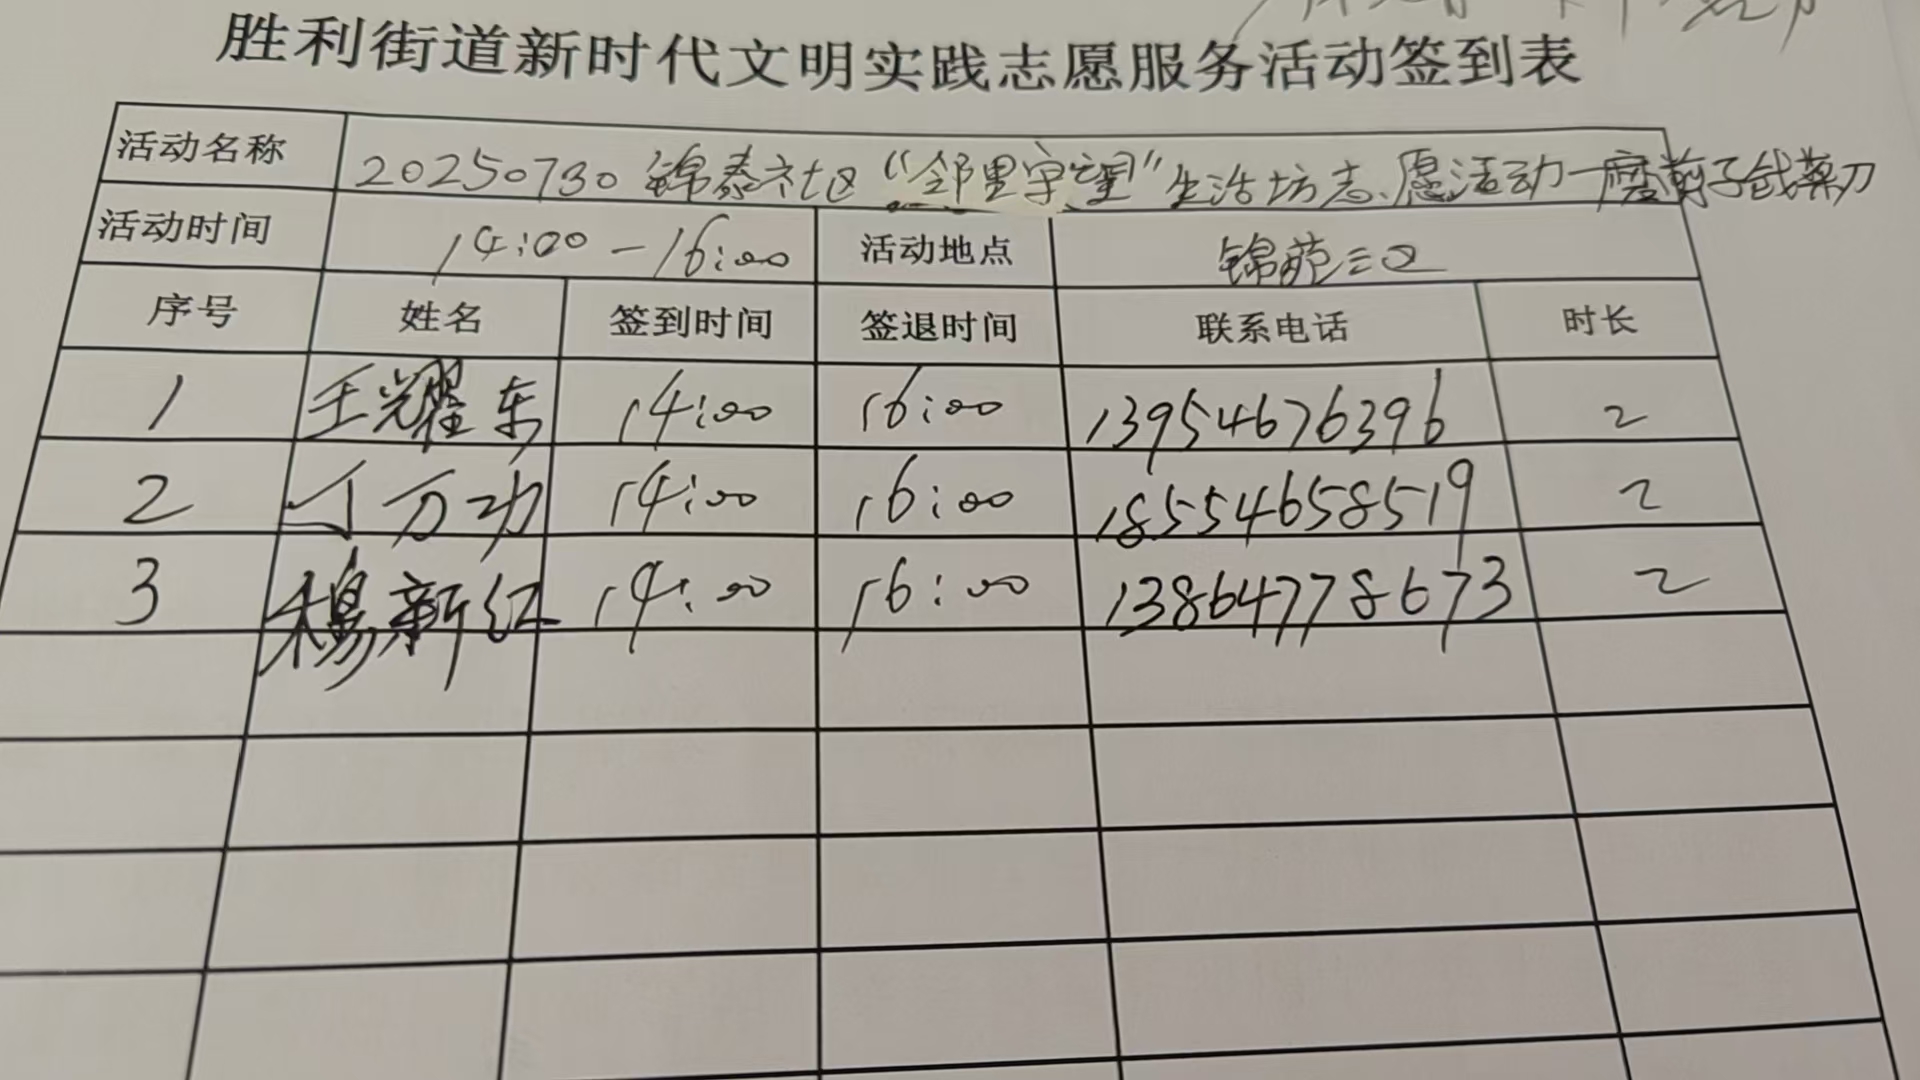 胜利街道新时代文明实践志愿服务活动签到表
活动名称 20250730锦泰社区“邻里守望”生活坊志愿活动—磨剪子戗菜刀
活动时间 14:00-16:00 活动地点 锦苑三区
序号 姓名 签到时间 签退时间 联系电话 时长
1 王耀东 14:00 16:00 13954676396 2
2 丁万功 14:00 16:00 18554658519 2
3 穆新红 14:00 16:00 13864778673 2